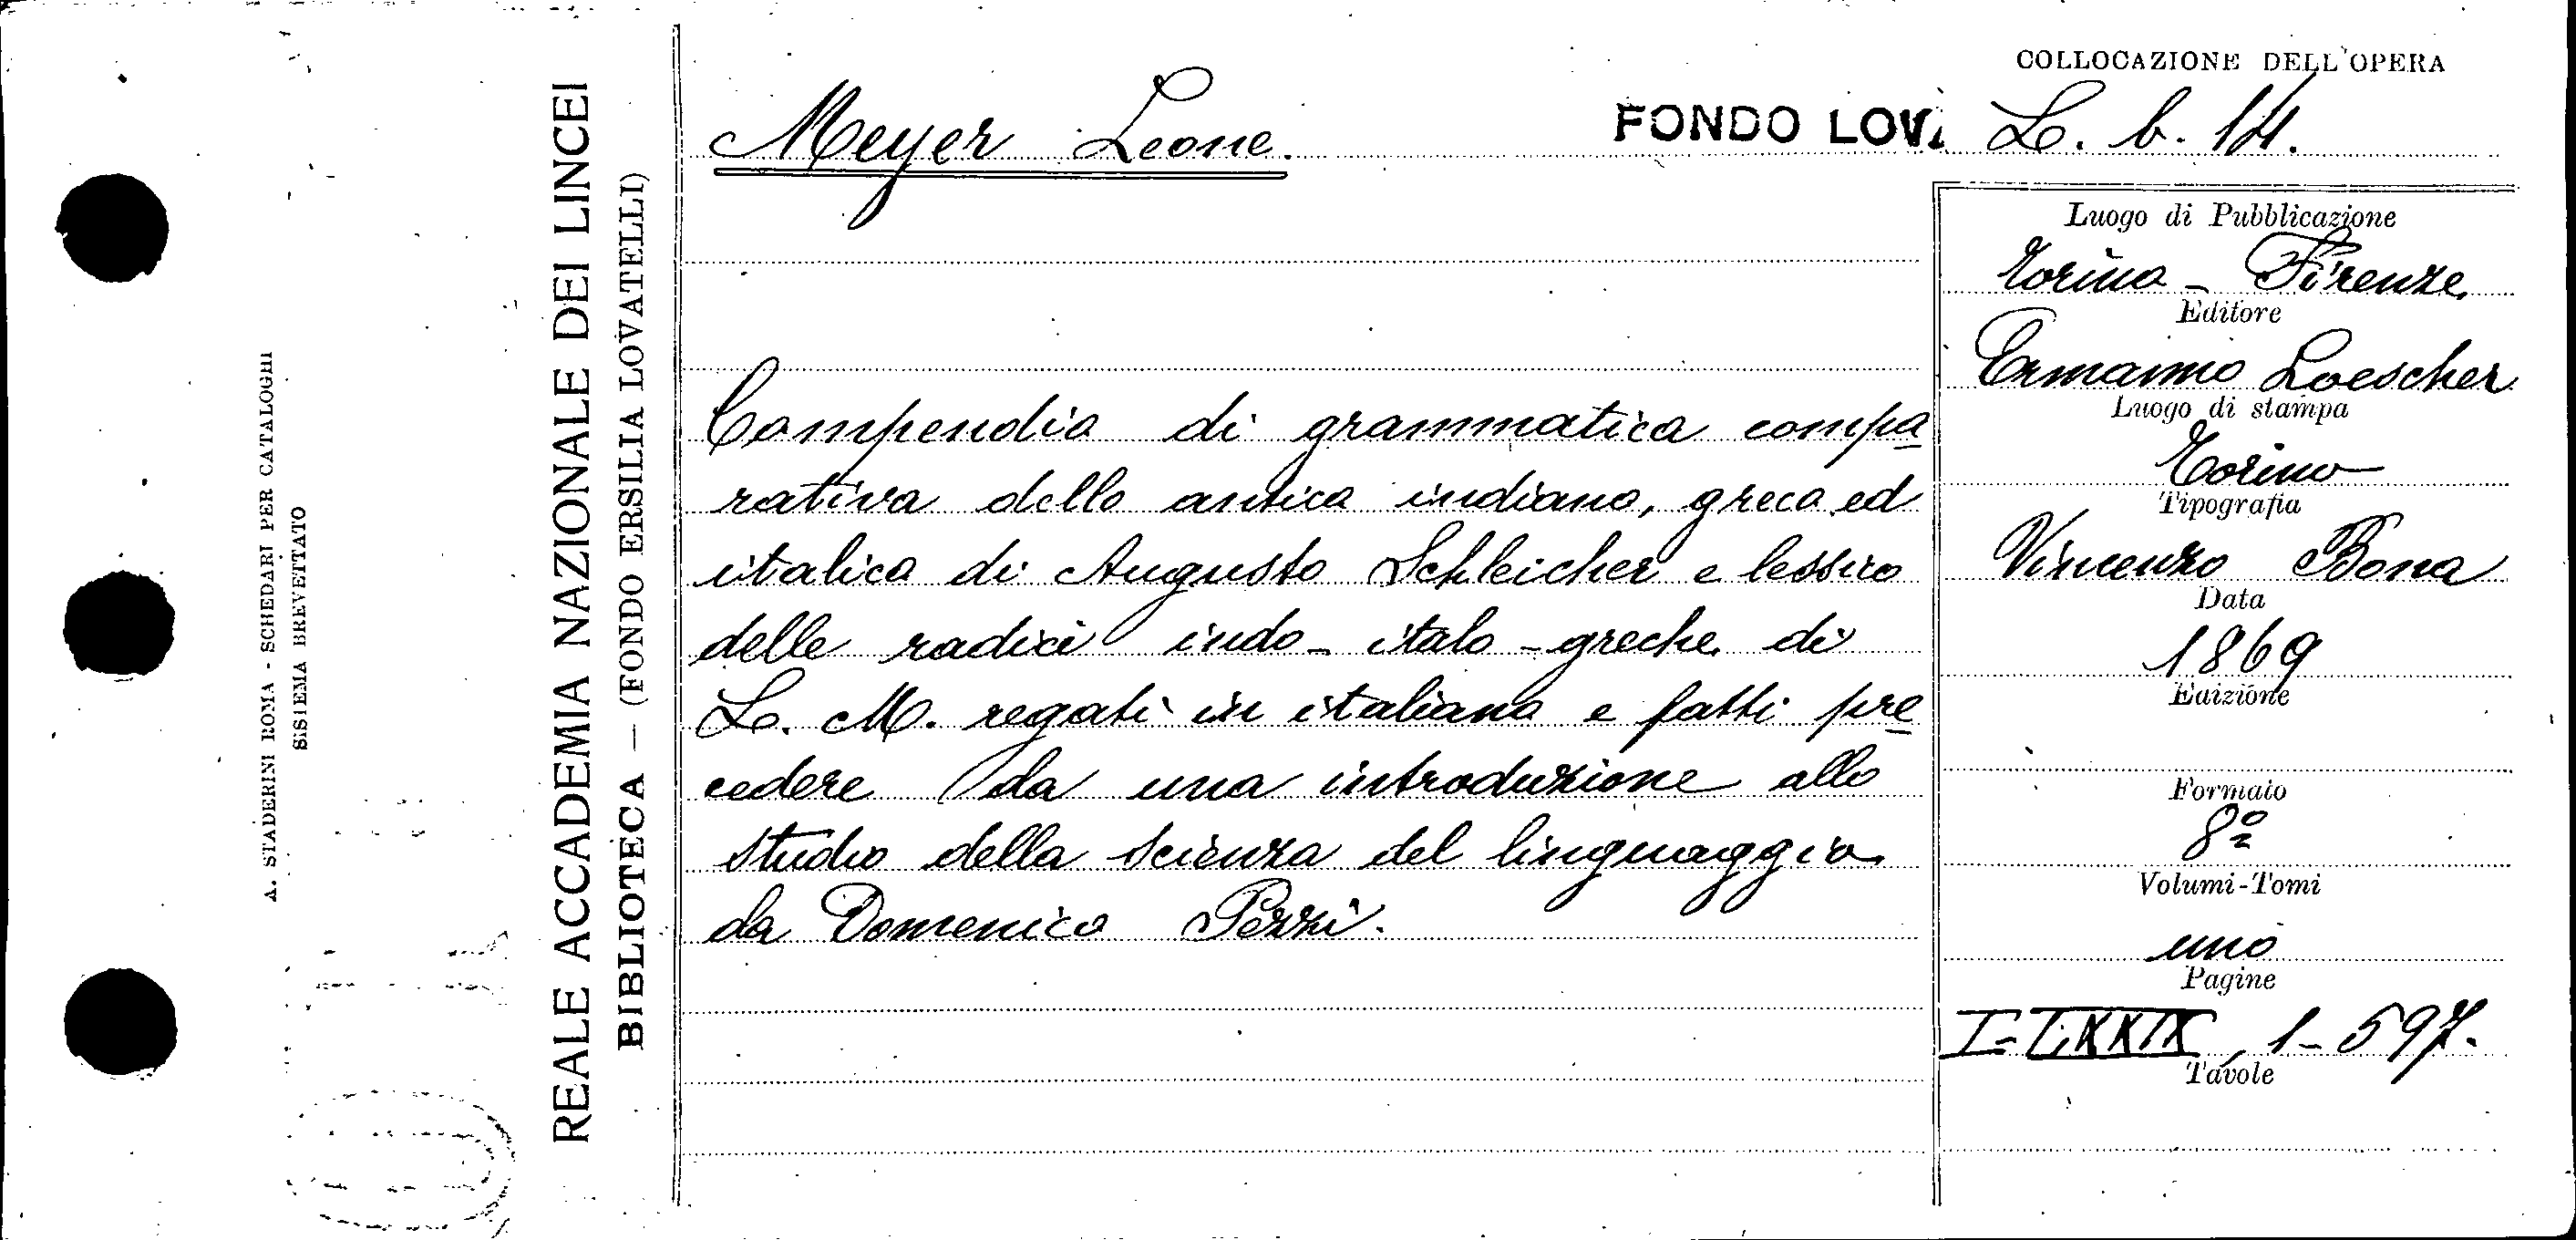 A. STADERINI ROMA - SCHEDARI PER CATALOGHI
SISTEMA BREVETTATO
REALE ACCADEMIA NAZIONALE DEI LINCEI
BIBLIOTECA — (FONDO ERSILIA LOVATELLI)
Meyer Leone.
FONDO LOV
COLLOCAZIONE DELL'OPERA
L. b. 14.
Compendio di grammatica compa
rativa dello antico indiano, greco ed
italico di Augusto Schleicher e lessico
delle radici indo-italo-greche di
L. M. regati in italiano e fatti pre
cedere da una introduzione allo
studio della scienza del linguaggio
da Domenico Pezzi.
Luogo di Pubblicazione
Torino - Firenze
Editore
Ermanno Loescher
Luogo di stampa
Torino
Tipografia
Vincenzo Bona
Data
1869
Edizione
Formato
8º
Volumi-Tomi
uno
Pagine
I-LXXIX, 1-597.
Tavole